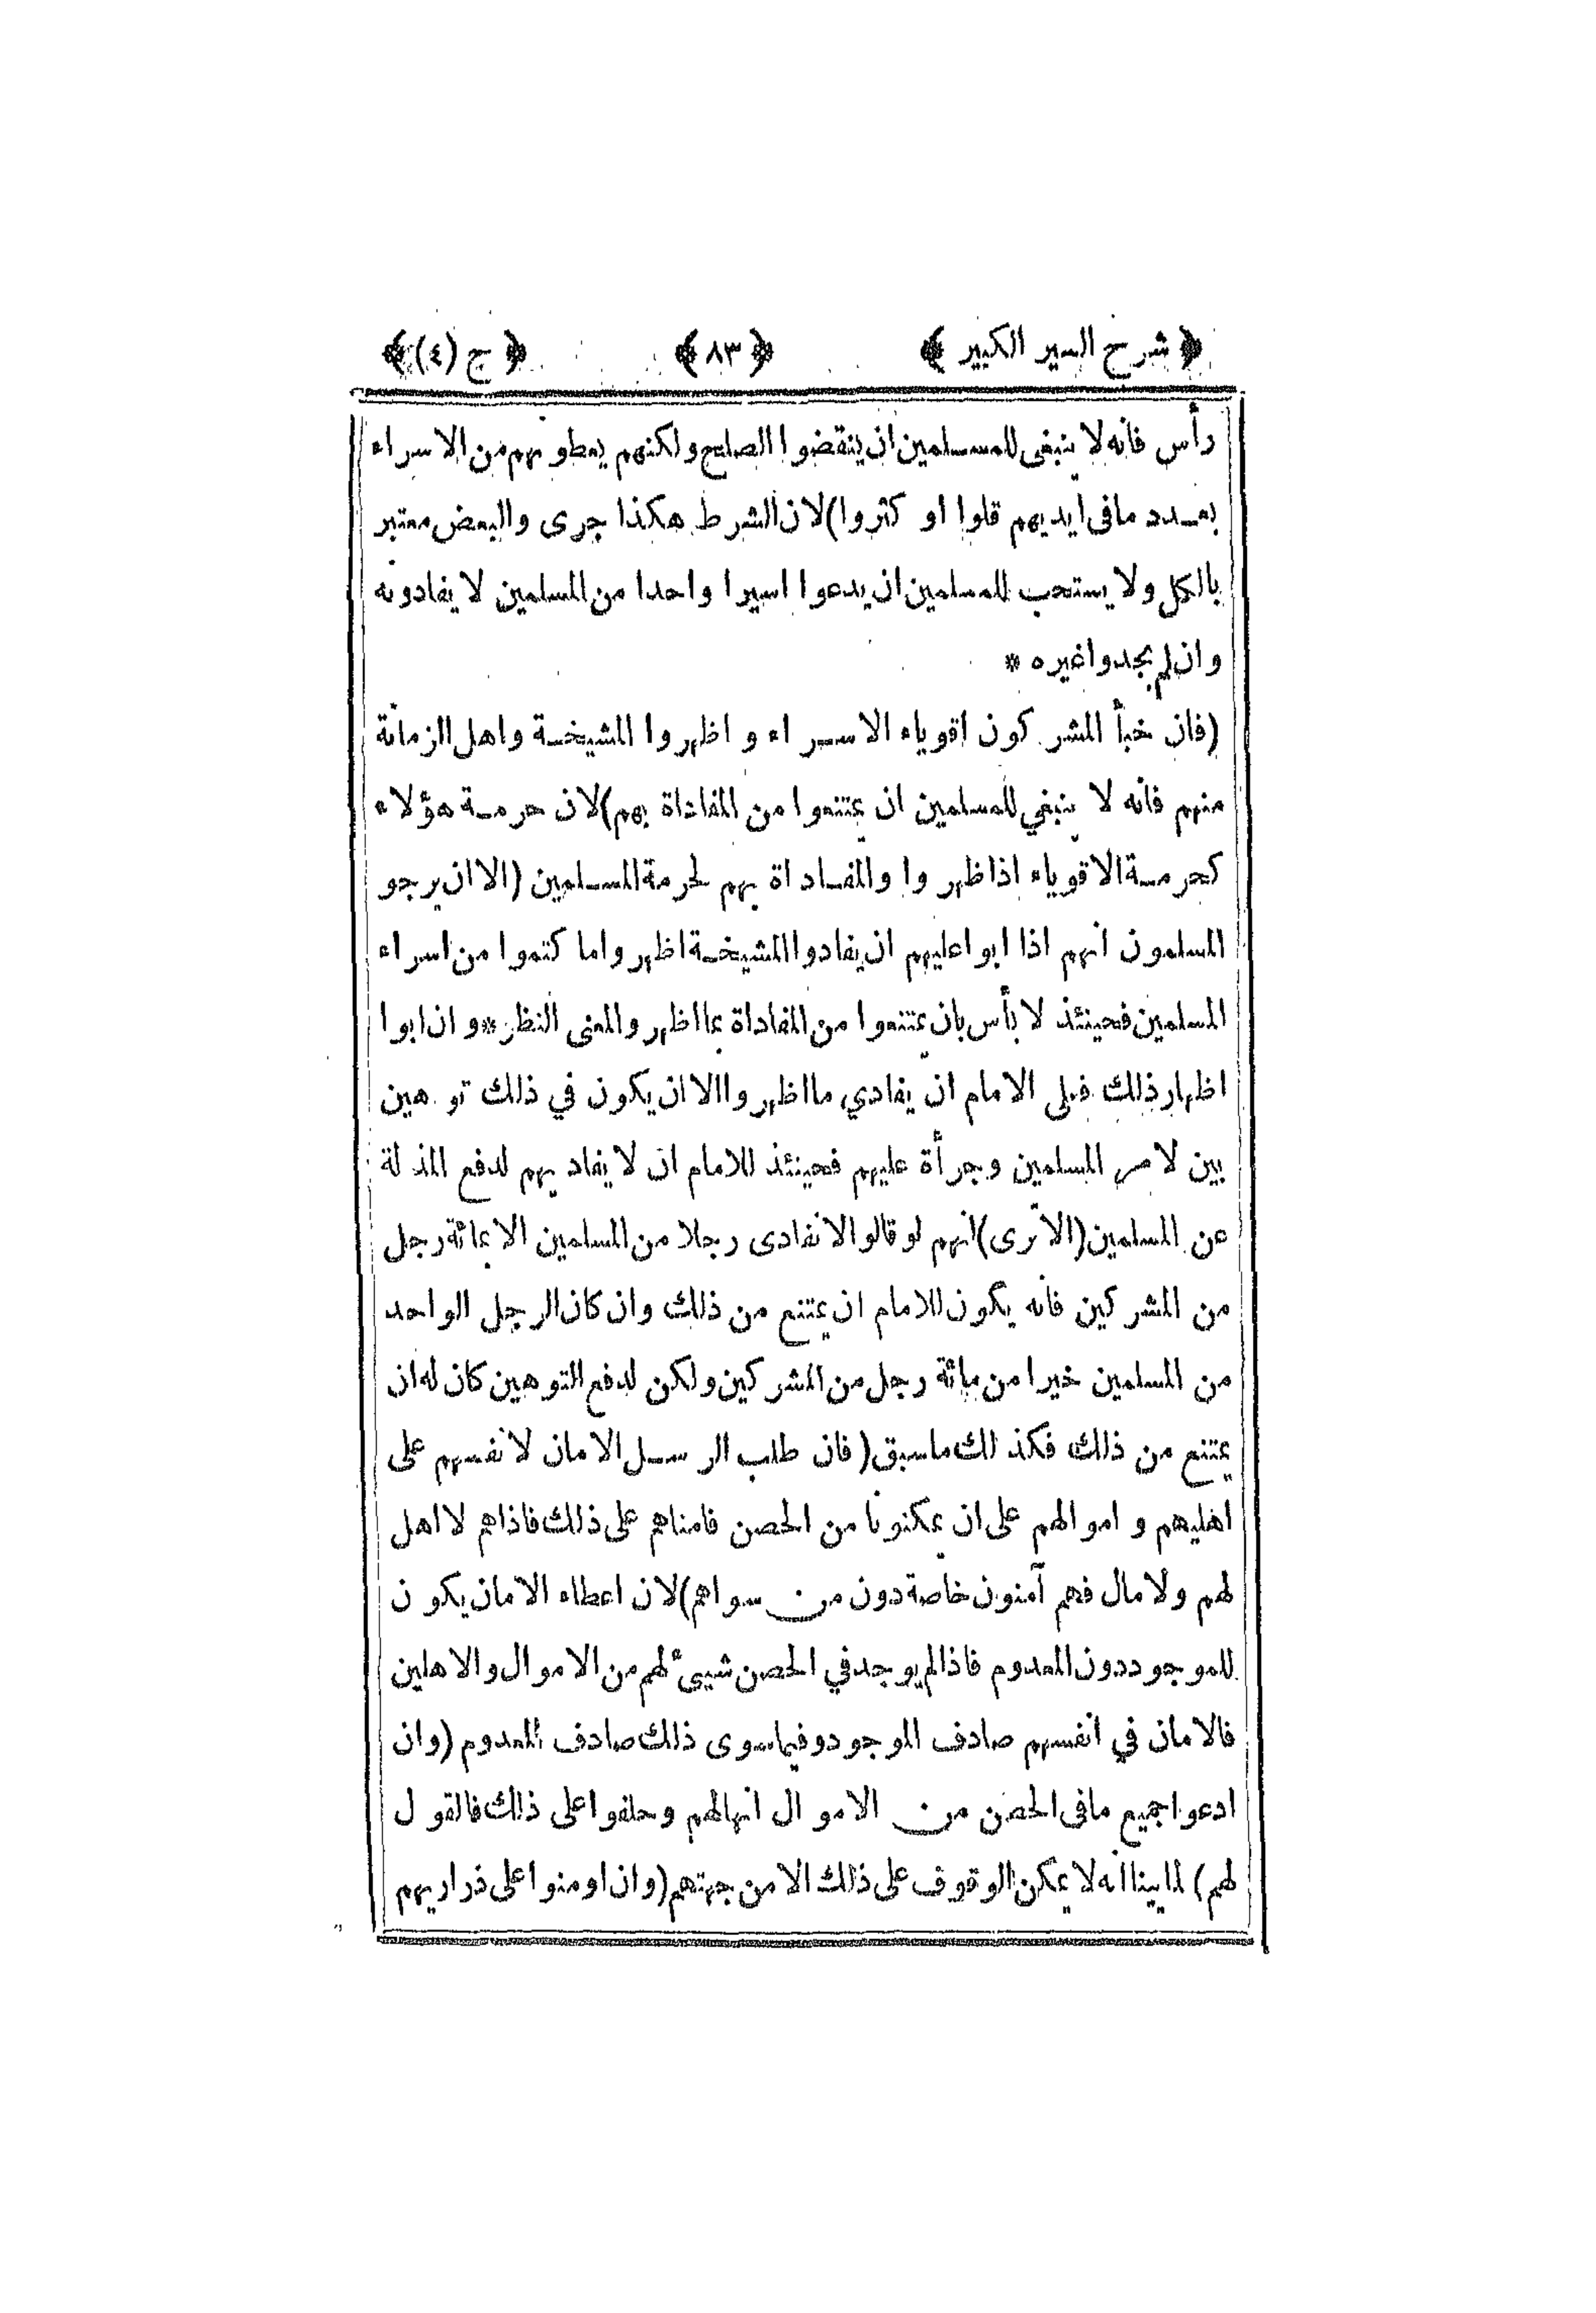 ﴿ شرح السير الكبير ﴾ ﴿ ٨٣ ﴾ ﴿ ج (٤) ﴾
رأس فانه لا ينبغى للمسلمين ان ينقضوا الصلح ولكنهم يعطونهم من الاسراء
بعدد ما فى ايديهم قلوا او كثروا) لان الشرط هكذا جرى والبعض معتبر
بالكل ولا يستحب للمسلمين ان يدعوا اسيرا واحدا من المسلمين لا يفادونه
وان لم يجدوا غيره *
(فان خبأ المشركون اقوياء الاسراء و اظهروا المشيخة واهل الزمانة
منهم فانه لا ينبغي للمسلمين ان يمتنعوا من المفاداة بهم) لان حرمة هؤلاء
كحرمة الاقوياء اذا ظهروا والمفاداة بهم لحرمة المسلمين (الا ان يرجو
المسلمون انهم اذا ابوا عليهم ان يفادوا المشيخة اظهروا ما كتموا من اسراء
المسلمين فحينئذ لا بأس بان يمتنعوا من المفاداة بما اظهر والمعنى النظر * وان ابوا
اظهار ذلك فعلى الامام ان يفادي ما اظهروا الا ان يكون في ذلك توهين
بين لامر المسلمين وجرأة عليهم فحينئذ للامام ان لا يفاديهم لدفع المذلة
عن المسلمين (الا ترى) انهم لو قالوا لا نفادى رجلا من المسلمين الا بمائة رجل
من المشركين فانه يكون للامام ان يمتنع من ذلك وان كان الرجل الواحد
من المسلمين خيرا من مائة رجل من المشركين ولكن لدفع التوهين كان له ان
يمتنع من ذلك فكذلك ما سبق (فان طلب الرسل الامان لانفسهم على
اهليهم و اموالهم على ان يمكنونا من الحصن فامناهم على ذلك فاذا هم لا اهل
لهم ولا مال فهم آمنون خاصة دون من سواهم) لان اعطاء الامان يكون
للموجود دون المعدوم فاذا لم يوجد في الحصن شيئ لهم من الاموال والاهلين
فالامان في انفسهم صادف الموجود وفيما سوى ذلك صادف المعدوم (وان
ادعوا جميع ما فى الحصن من الاموال انها لهم وحلفوا على ذلك فالقول
لهم) لما بينا انه لا يمكن الوقوف على ذلك الا من جهتهم (وان اومنوا على ذراريهم